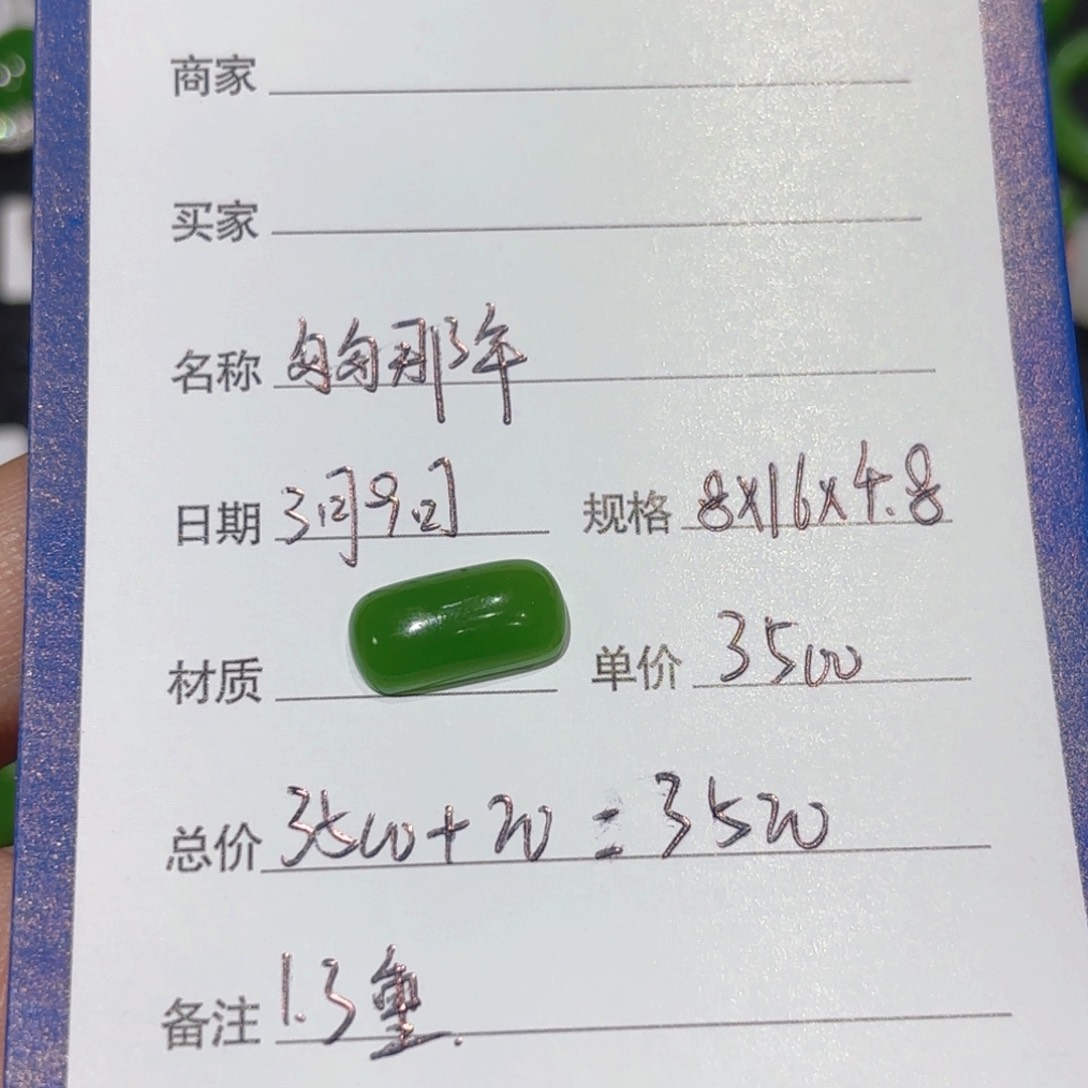 商家
买家
名称 匆匆那年
日期 3月9日 规格 8x16x4.8
材质 单价 3500
总价 3500+20=3520
备注 1.3重.